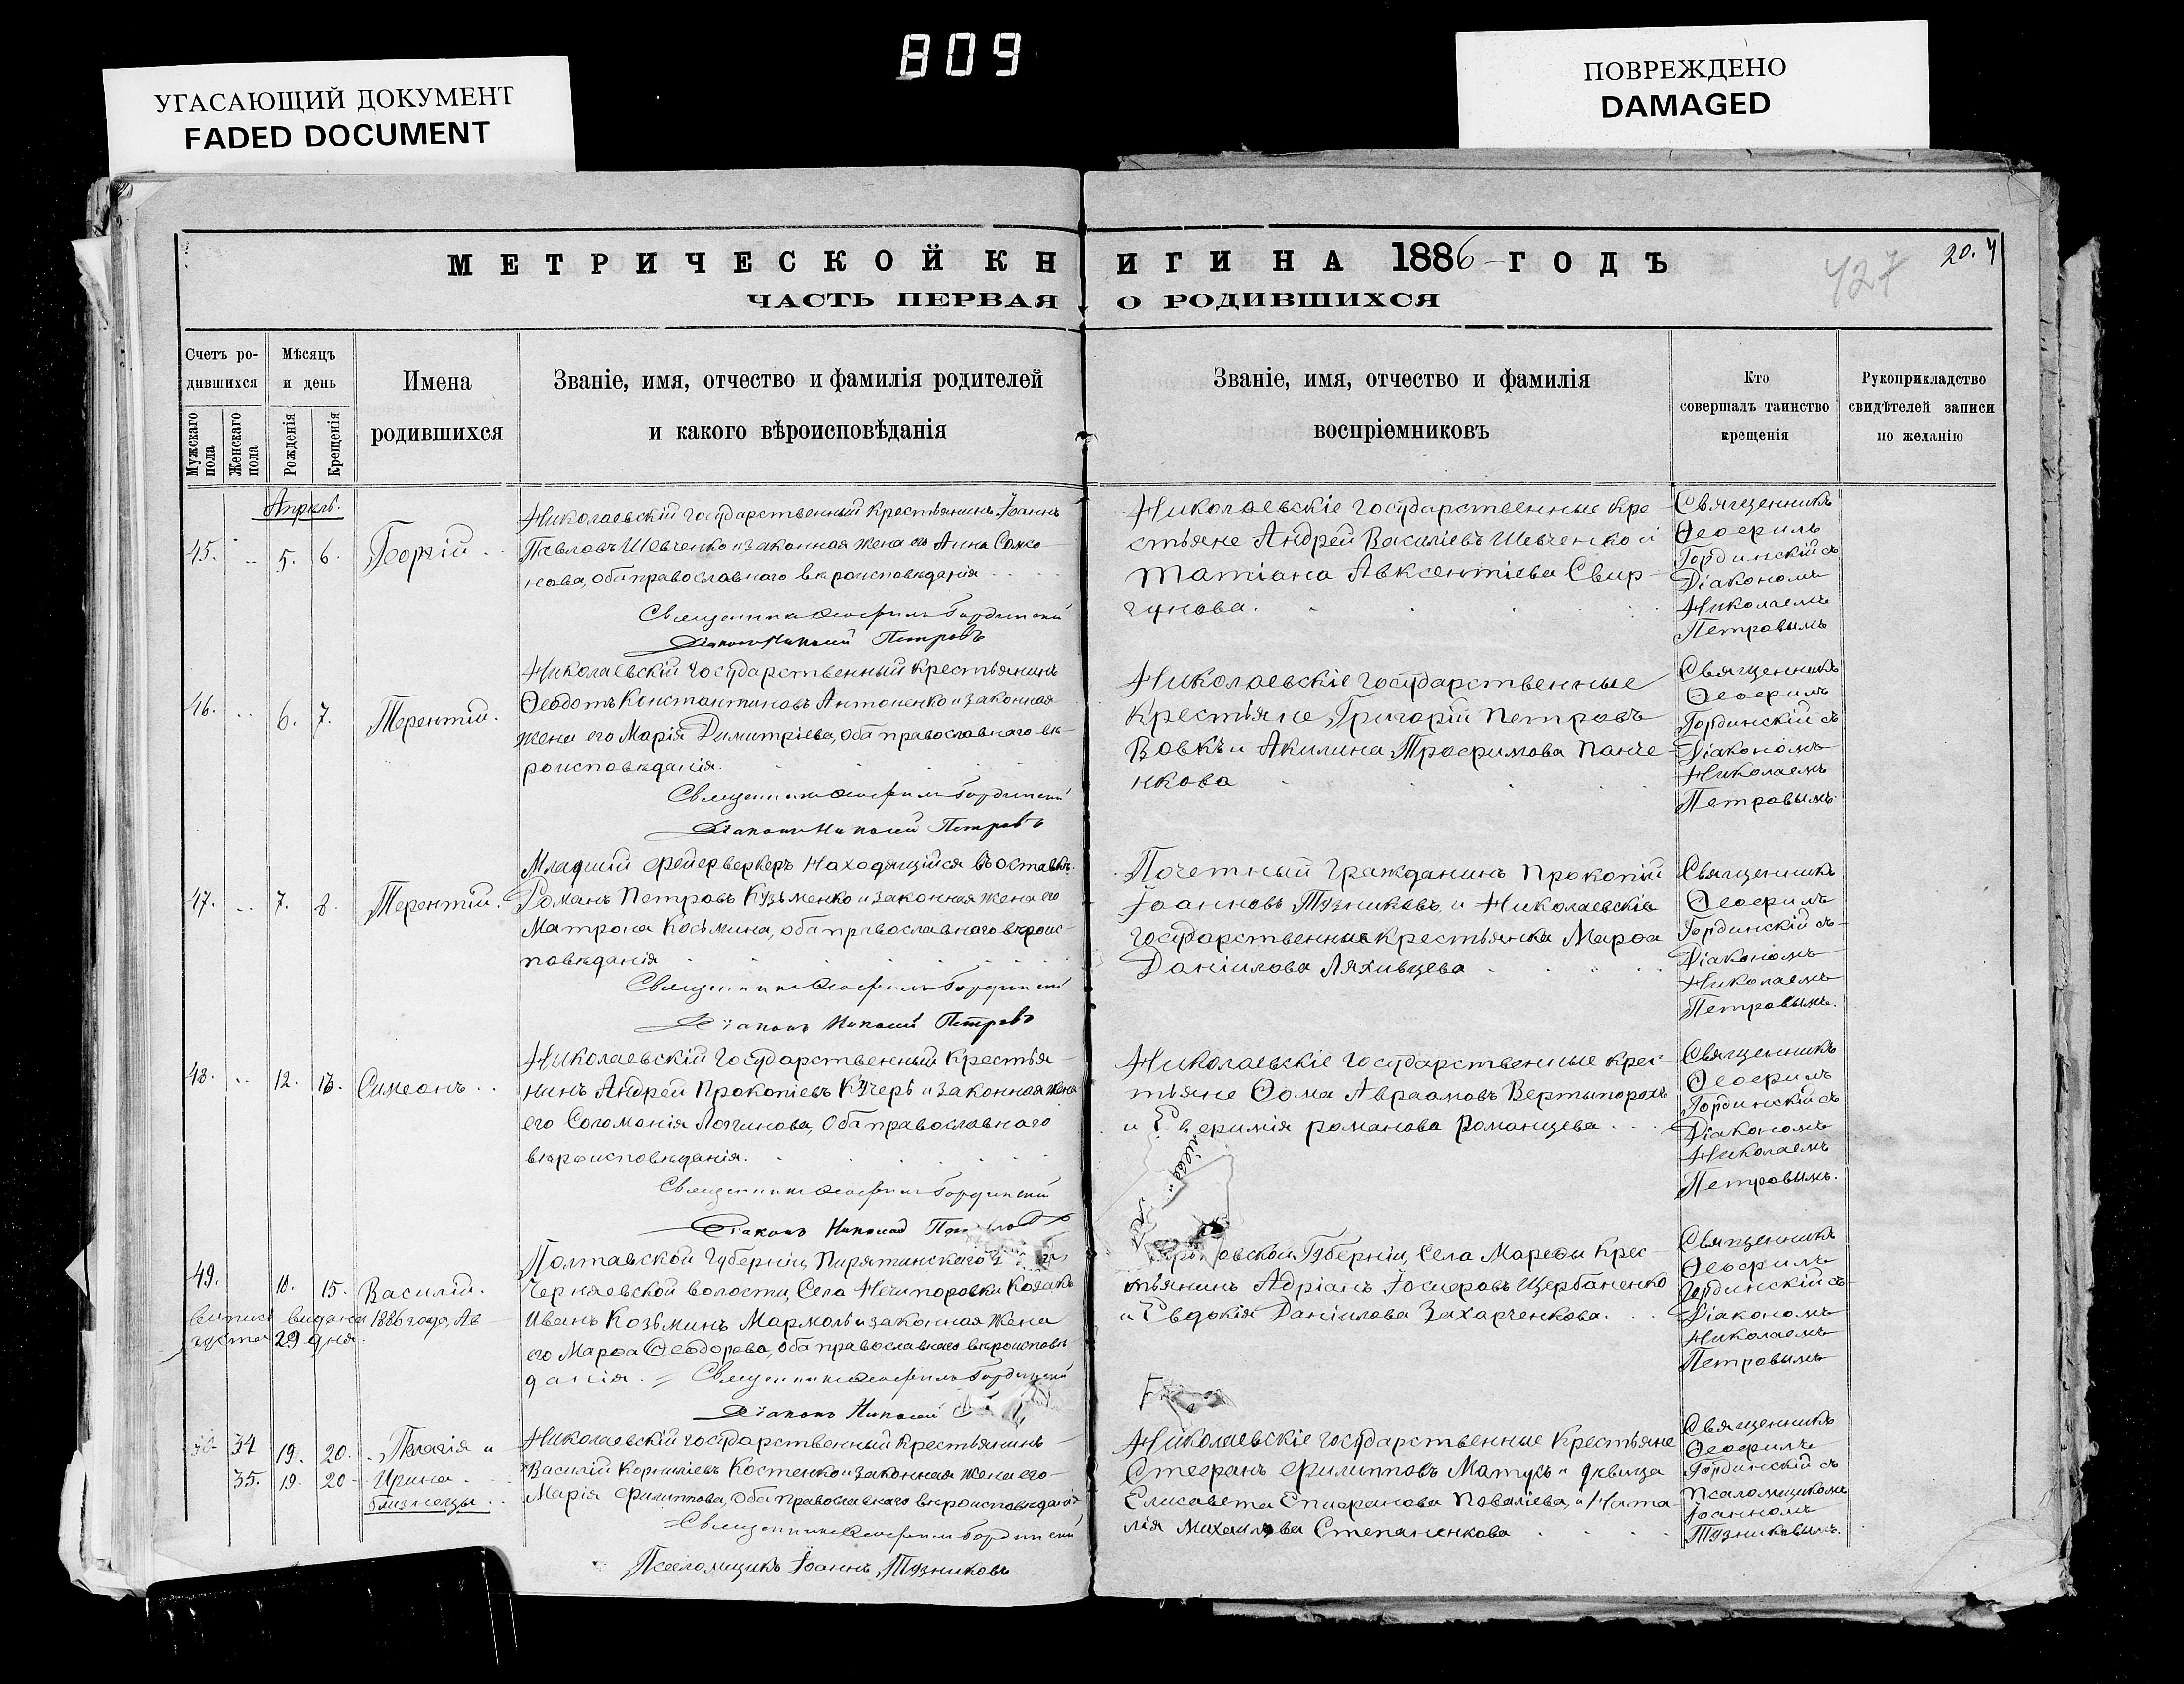 809
УГАСАЮЩИЙ ДОКУМЕНТ
FADED DOCUMENT
ПОВРЕЖДЕНО
DAMAGED
МЕТРИЧЕСКОЙ КНИГИ НА 1886 ГОДЪ
427
20.
ЧАСТЬ ПЕРВАЯ О РОДИВШИХСЯ
Счетъ родившихся
Мужскаго пола
Женскаго пола
Мѣсяцъ и день
Рожденія
Крещенія
Имена
родившихся
Званіе, имя, отчество и фамилія родителей
и какого вѣроисповѣданія
Званіе, имя, отчество и фамилія
воспріемниковъ
Кто
совершалъ таинство
крещенія
Рукоприкладство
свидѣтелей записи
по желанію
Апрѣль.
45. 5. 6. Георгій
Николаевскій государственный крестьянинъ Іоаннъ
Павловъ Шевченко и законная жена его Анна
нова, оба православнаго вѣроисповѣданія
Священникъ Ѳеофилъ Гординскій
Діаконъ Николай Петровъ
Николаевскіе государственные кре-
стьяне Андрей Василіевъ Шевченко и
Татіана Авксентіева Свир-
гунова.
Священникъ
Ѳеофилъ
Гординскій съ
Діакономъ
Николаемъ
Петровымъ
46. 6. 7. Терентій.
Николаевскій государственный крестьянинъ
Ѳеодотъ Константиновъ Антоненко и законная
жена его Марія Димитріева, оба православнаго вѣ-
роисповѣданія.
Священникъ Ѳеофилъ Гординскій
Діаконъ Николай Петровъ
Николаевскіе государственные
крестьяне, Григорій Петровъ
Вовкъ и Акилина Трофимова Панче-
нкова
Священникъ
Ѳеофилъ
Гординскій съ
Діакономъ
Николаемъ
Петровымъ
47. 7. 8. Терентій.
Младшій фейерверкеръ находящійся въ отставкѣ
Романъ Петровъ Кузьменко и законная жена его
Матрона Косьмина, оба православнаго вѣроис-
повѣданія
Священникъ Ѳеофилъ Гординскій
Діаконъ Николай Петровъ
Почетный гражданинъ Прокопій
Іоанновъ Тузниковъ и Николаевскіе
государственная крестьянка Марѳа
Даніилова Ляхивцева
Священникъ
Ѳеофилъ
Гординскій съ
Діакономъ
Николаемъ
Петровымъ.
48. 12. 13. Симеонъ
Николаевскій государственный крестья-
нинъ Андрей Прокопіевъ Кучеръ и законная жена
его Соломонія Логинова, оба православнаго
вѣроисповѣданія.
Священникъ Ѳеофилъ Гординскій
Діаконъ Николай
Николаевскіе государственные крес-
тьяне Ѳома Авраамовъ Вертыпорохъ
и Евфимія Романова Романцева
Священникъ
Ѳеофилъ
Гординскій съ
Діакономъ
Николаемъ
Петровымъ.
49. 10. 15. Василій.
выпись видана 1886 года, Ав-
густа 29 дня.
Полтавской губерніи, Пирятинскаго
Черняевской волости, Села Нечипоровки Козакъ
Иванъ Козьминъ Мармоль и законная жена
его Марѳа Ѳеодорова, оба православнаго вѣроисповѣ-
данія. Священникъ Ѳеофилъ Гординскій
Діаконъ Николай
Губерніи, Села Марефы крес-
тьянинъ Адріанъ Іосифовъ Щербаненко
и Евдокія Даніилова Захарченкова.
Священникъ
Ѳеофилъ
Гординскій съ
Діакономъ
Николаемъ
Петровымъ
34 19. 20. Пелагія и
35. 19. 20 Ирина
близнецы
Николаевскій государственный крестьянинъ
Василій Корниліевъ Костенко и законная жена его
Марія Филиппова, оба православнаго вѣроисповѣданія
Священникъ Ѳеофилъ Гординскій
Псаломщикъ Іоаннъ Тузниковъ
Николаевскіе государственные крестьяне
Стефанъ Филипповъ Матухъ и дѣвица
Елисавета Епифанова Поваліева, и Ната-
лія Михаилова Степаненкова
Священникъ
Ѳеофилъ
Гординскій съ
Псаломщикомъ
Іоанномъ
Тузниковымъ.